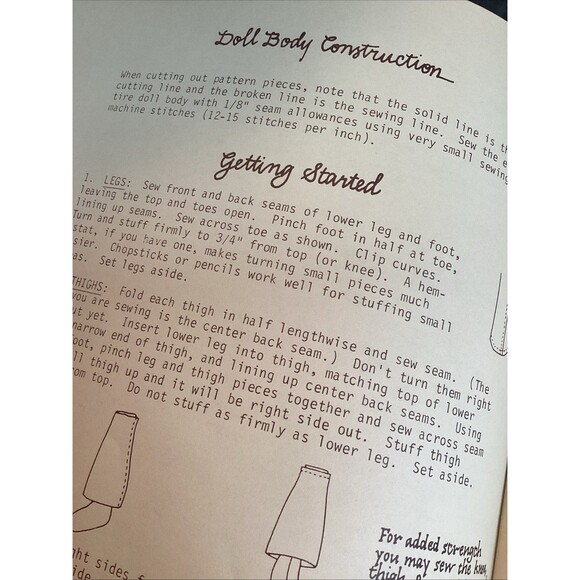 Doll Body Construction
When cutting out pattern pieces, note that the solid line is
cutting line and the broken line is the sewing line. Sew the
tire doll body with 1/8" seam allowances using very small sewing
machine stitches (12-15 stitches per inch).
Getting Started
1. LEGS: Sew front and back seams of lower leg and foot,
leaving the top and toes open. Pinch foot in half at toe,
lining up seams. Sew across toe as shown. Clip curves.
Turn and stuff firmly to 3/4" from top (or knee). A hem-
stat, if you have one, makes turning small pieces much
sier. Chopsticks or pencils work well for stuffing small
as. Set legs aside.
THIGHS: Fold each thigh in half lengthwise and sew seam. (The
you are sewing is the center back seam.) Don't turn them right
ut yet. Insert lower leg into thigh, matching top of lower
narrow end of thigh, and lining up center back seams. Using
oot, pinch leg and thigh pieces together and sew across seam
ll thigh up and it will be right side out. Stuff thigh
om top. Do not stuff as firmly as lower leg. Set aside.
For added strength
you may sew the knee,
ght sides